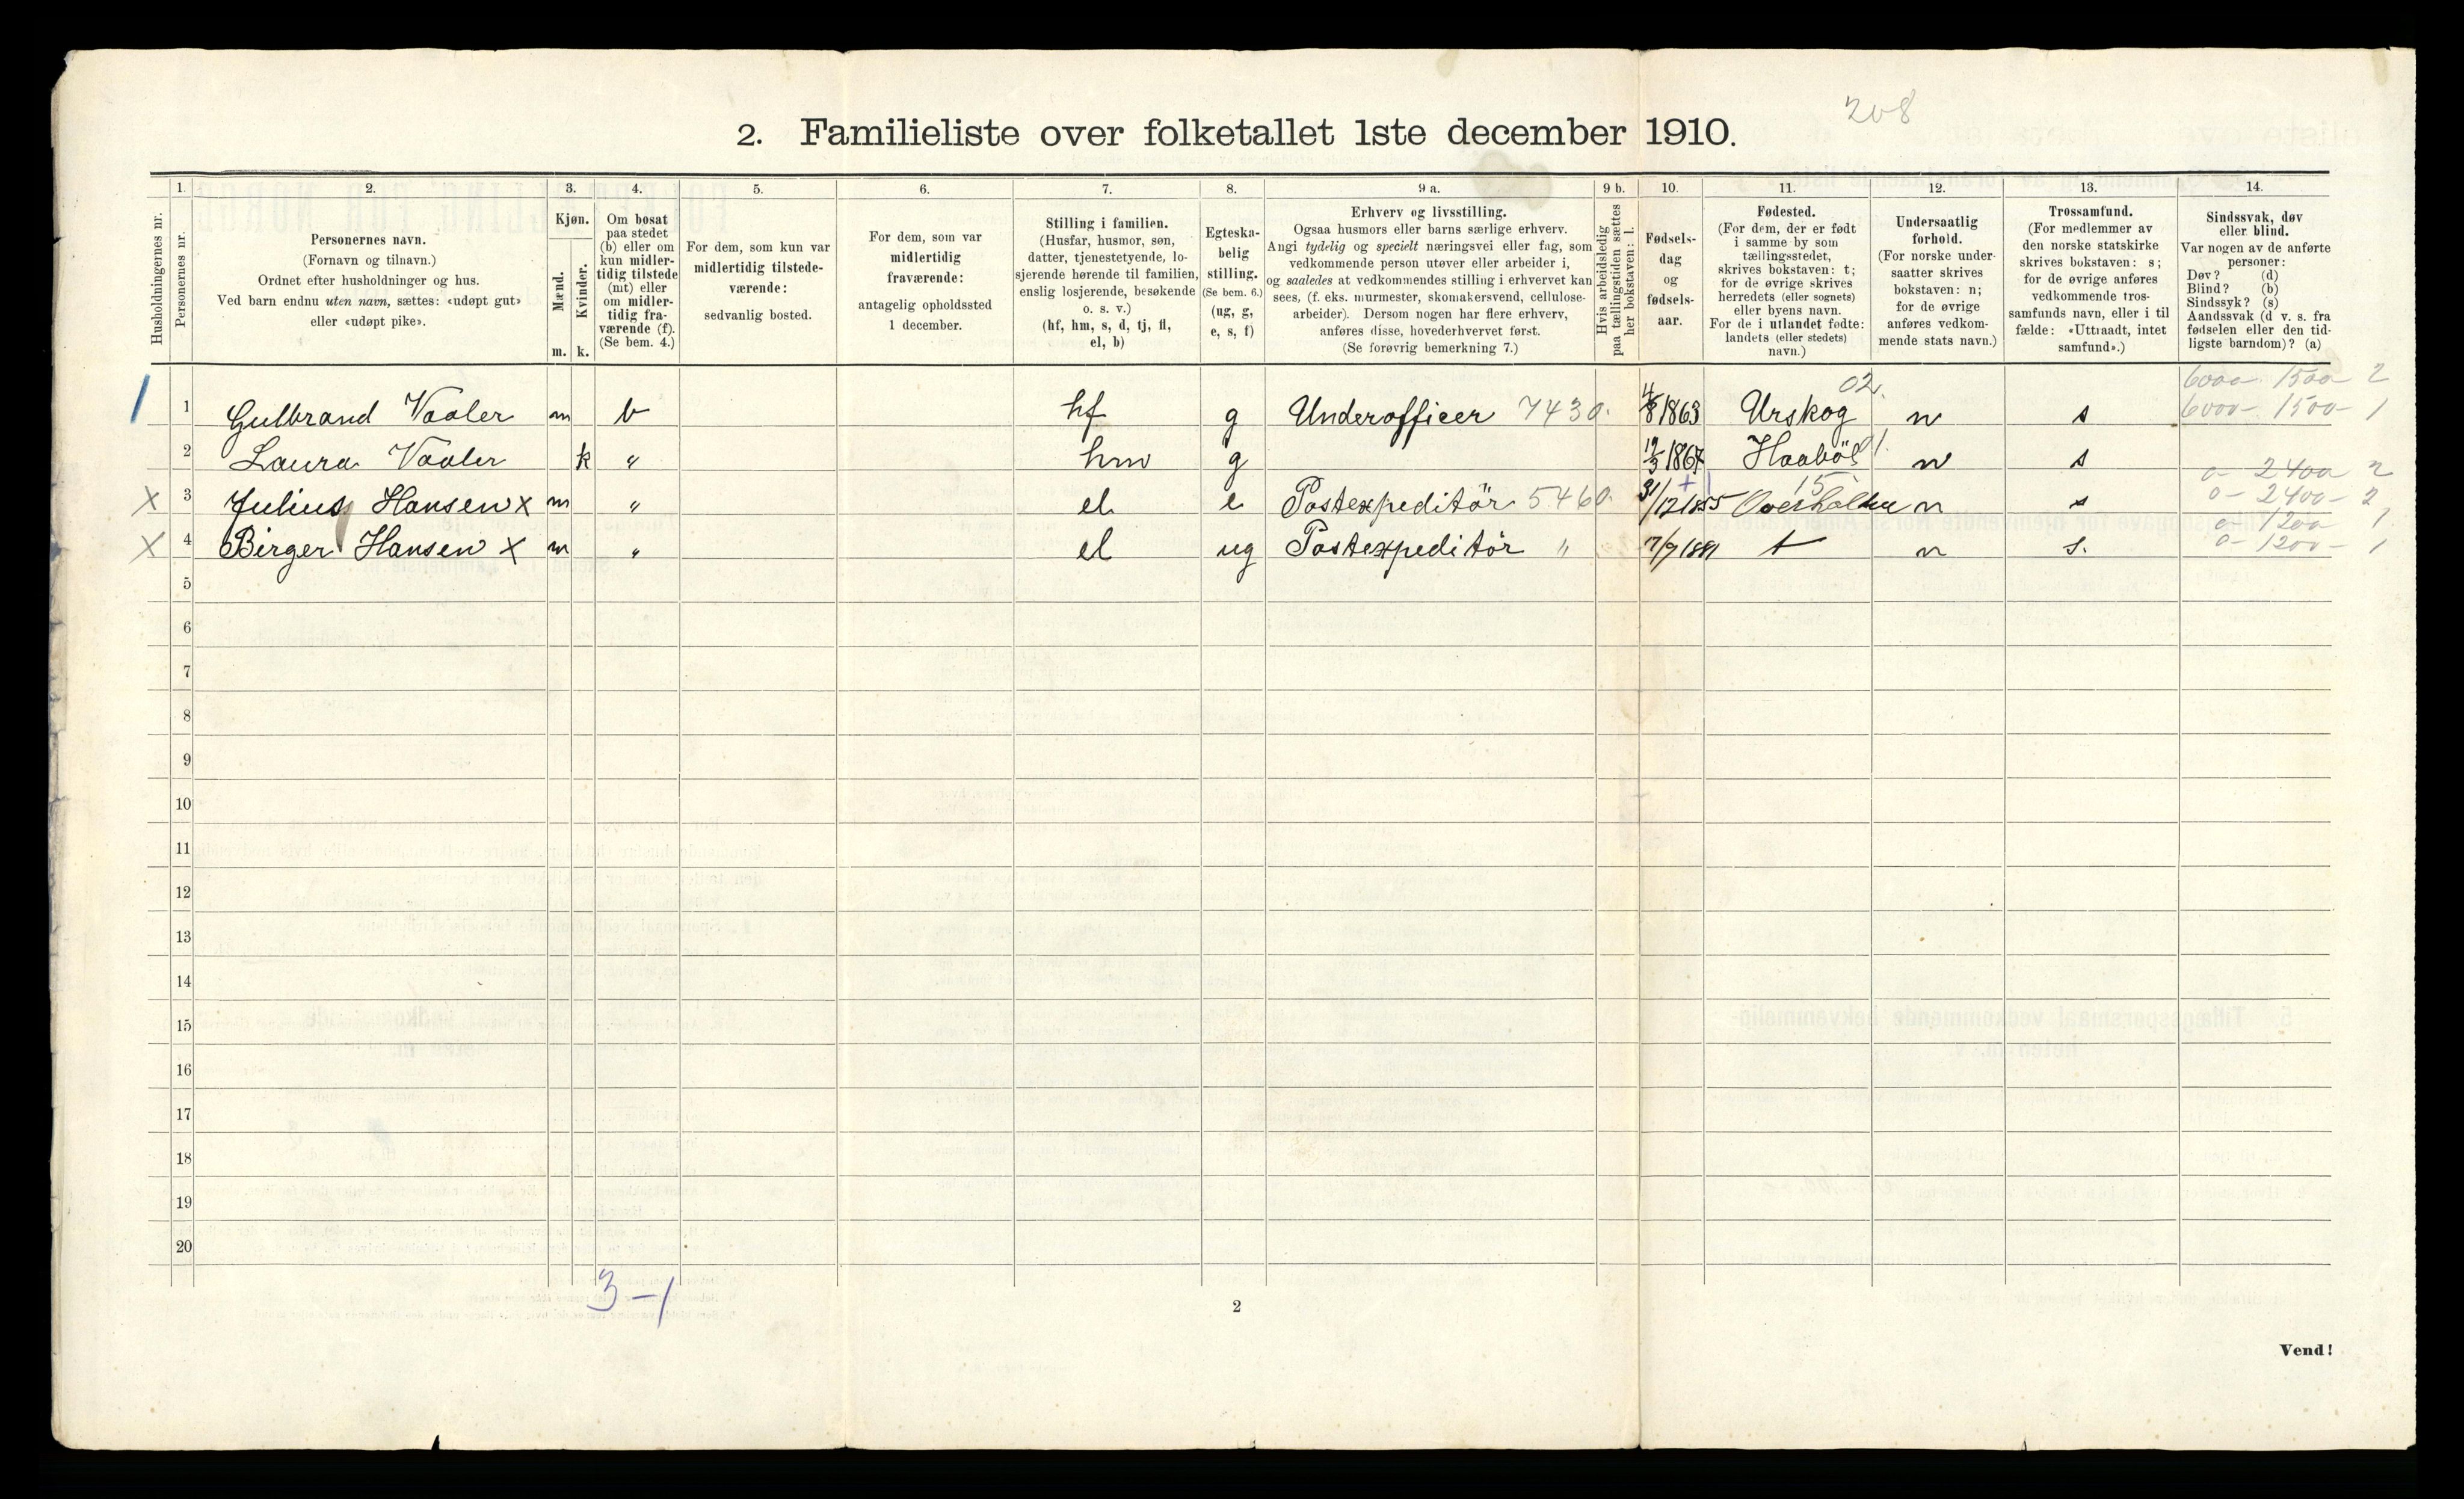 208
2. Familieliste over folketallet 1ste december 1910.
Husholdningernes nr.
1.
Personernes nr.
2.
Personernes navn.
(Fornavn og tilnavn.)
Ordnet efter husholdninger og hus.
Ved barn endnu uten navn, sættes: «udøpt gut»
eller «udøpt pike».
3.
Kjøn.
Mænd.
Kvinder.
m. k.
4.
Om bosat
paa stedet
(b) eller om
kun midler-
tidig tilstede
(mt) eller
om midler-
tidig fra-
værende (f).
(Se bem. 4.)
5.
For dem, som kun var
midlertidig tilstede-
værende:
sedvanlig bosted.
6.
For dem, som var
midlertidig
fraværende:
antagelig opholdssted
1 december.
7.
Stilling i familien.
(Husfar, husmor, søn,
datter, tjenestetyende, lo-
sjerende hørende til familien,
enslig losjerende, besøkende
o. s. v.)
(hf, hm, s, d, tj, fl,
el, b)
8.
Egteska-
belig
stilling.
(Se bem. 6.)
(ug, g,
e, s, f)
9 a.
Erhverv og livsstilling.
Ogsaa husmors eller barns særlige erhverv.
Angi tydelig og specielt næringsvei eller fag, som
vedkommende person utøver eller arbeider i,
og saaledes at vedkommendes stilling i erhvervet kan
sees, (f. eks. murmester, skomakersvend, cellulose-
arbeider). Dersom nogen har flere erhverv,
anføres disse, hovederhvervet først.
(Se forøvrig bemerkning 7.)
9 b.
Hvis arbeidsledig
paa tællingstiden sættes
her bokstaven: l.
10.
Fødsels-
dag
og
fødsels-
aar.
11.
Fødested.
(For dem, der er født
i samme by som
tællingsstedet,
skrives bokstaven: t;
for de øvrige skrives
herredets (eller sognets)
eller byens navn.
For de i utlandet fødte:
landets (eller stedets)
navn.)
12.
Undersaatlig
forhold.
(For norske under-
saatter skrives
bokstaven: n;
for de øvrige
anføres vedkom-
mende stats navn.)
13.
Trossamfund.
(For medlemmer av
den norske statskirke
skrives bokstaven: s;
for de øvrige anføres
vedkommende tros-
samfunds navn, eller i til
fælde: «Uttraadt, intet
samfund».)
14.
Sindssvak, døv
eller blind.
Var nogen av de anførte
personer:
Døv? (d)
Blind? (b)
Sindssyk? (s)
Aandssvak (d v. s. fra
fødselen eller den tid-
ligste barndom)? (a)
02. 6000 1500 2
1 1 Gulbrand Vaaler m b hf g Underofficer 7430. 4/8 1863 Urskog n s 6000- 1500- 1
2 Laura Vaaler k " hm g 12/3 1867 Haaböl 1. n s
15 0- 2400 2
X 3 Julius Hansen x m " el e Postexpeditör 5460. 31/12 1855 Overhalden n s 0- 2400- 2
0- 1200 1
X 4 Birger Hansen x m " el ug Postexpeditör " 17/9 1881 t n s. 0- 1200- 1
5
6
7
8
9
10
11
12
13
14
15
16
17
18
19
20
3-1
2
Vend!